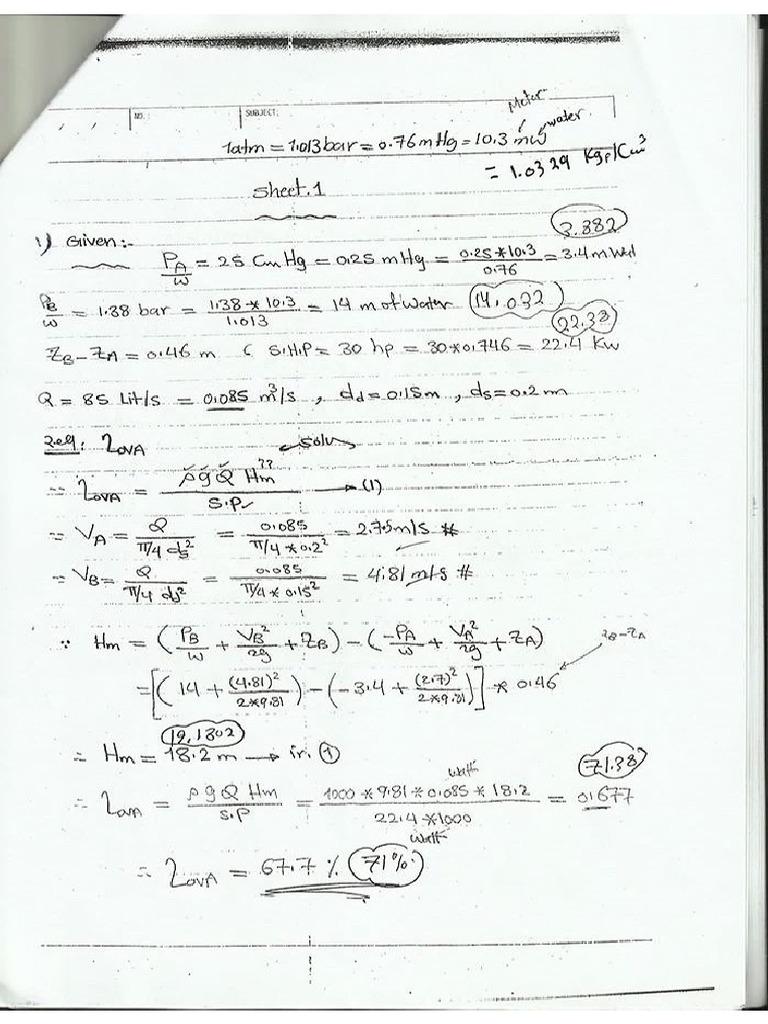 NO.: SUBJECT:
Meter
water
1atm = 1.013 bar = 0.76 mHg = 10.3 mw
= 1.0329 Kgf/Cm³
Sheet.1
3.382
1) Given:-
PA/w = 25 Cm Hg = 0.25 mHg = 0.25*10.3/0.76 = 3.4 m
PB/w = 1.38 bar = 1.38*10.3/1.013 = 14 m of water 14.032
22.38
ZB-ZA = 0.46 m ( S.H.P = 30 hp = 30*0.746 = 22.4 Kw
Q = 85 Lit/s = 0.085 m³/s , dd = 0.15m , ds = 0.2 m
Req: ηOVA
Solu
∵ ηOVA = ρgQ Hm??/S.P → (1)
∴ VA = Q/π/4 ds² = 0.085/π/4*0.2² = 2.75 m/s #
∴ VB = Q/π/4 dd² = 0.085/π/4*0.15² = 4.81 m/s #
∵ Hm = (PB/w + VB²/2g + ZB) - (-PA/w + VA²/2g + ZA) ZB-ZA
= [(14 + (4.81)²/2*9.81) - (-3.4 + (2.7)²/2*9.81)] * 0.46
18.1802
∴ Hm = 18.2 m → in. ①
watt
71.38
∴ ηOVA = ρgQ Hm/S.P = 1000*9.81*0.085*18.2/22.4*1000 = 0.677
watt
∴ ηOVA = 67.7 % 71%